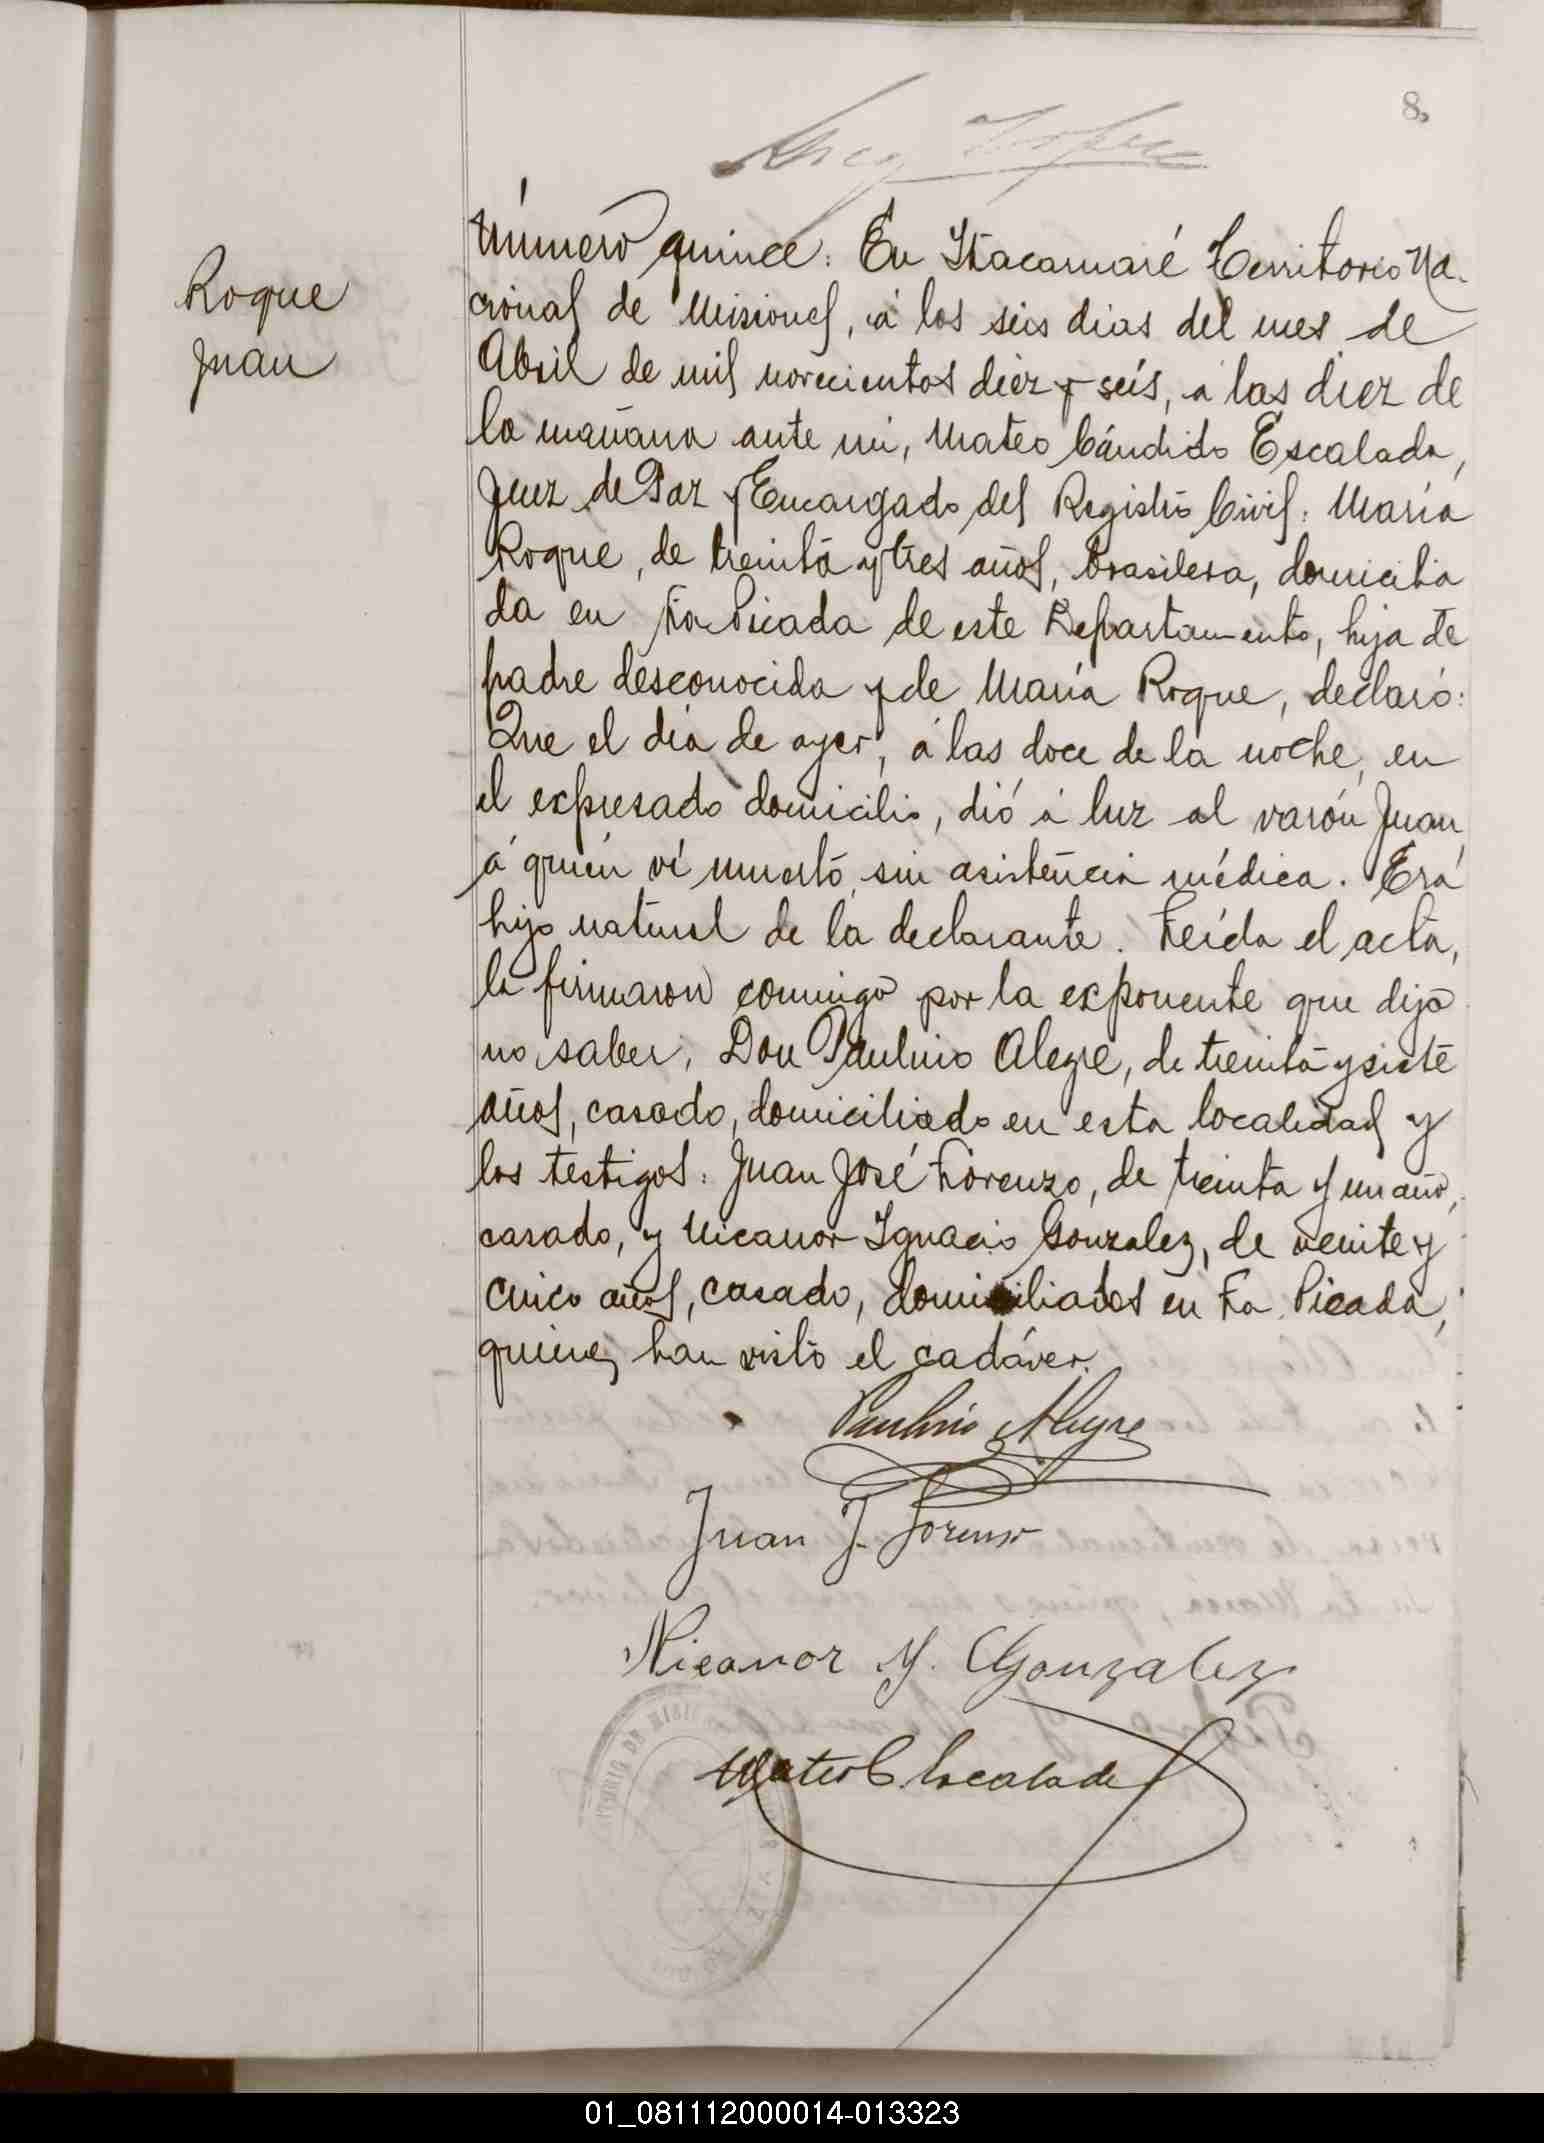 8.
Número quince: En Itacaruaré Territorio Na-
cional de Misiones, á los seis dias del mes de
Roque
Juan
Abril de mil novecientos diez y seis, á las diez de
la mañana ante mi, Mateo Cándido Escalada,
Juez de Paz y Encargado del Registro Civil: María
Roque, de treinta y tres años, brasilera, domicilia
da en La Picada de este Departamento, hija de
padre desconocido y de María Roque, declaró:
Que el día de ayer, á las doce de la noche, en
el expresado domicilio, dió á luz al varón Juan,
á quién ví muerto, sin asistencia médica. Era
hijo natural de la declarante. Leída el acta,
la firmaron conmigo por la exponente que dijo
no saber, Don Paulino Alegre, de treinta y siete
años, casado, domiciliado en esta localidad y
los testigos: Juan José Lorenzo, de treinta y un año,
casado, y Nicanor Ignacio Gonzalez, de veinte y
cinco años, casado, domiciliados en La Picada,
quienes han visto el cadáver.
Paulino Alegre
Juan J. Lorenzo
Nicanor Y. Gonzalez
Mateo C. Escalada
01_081112000014-013323